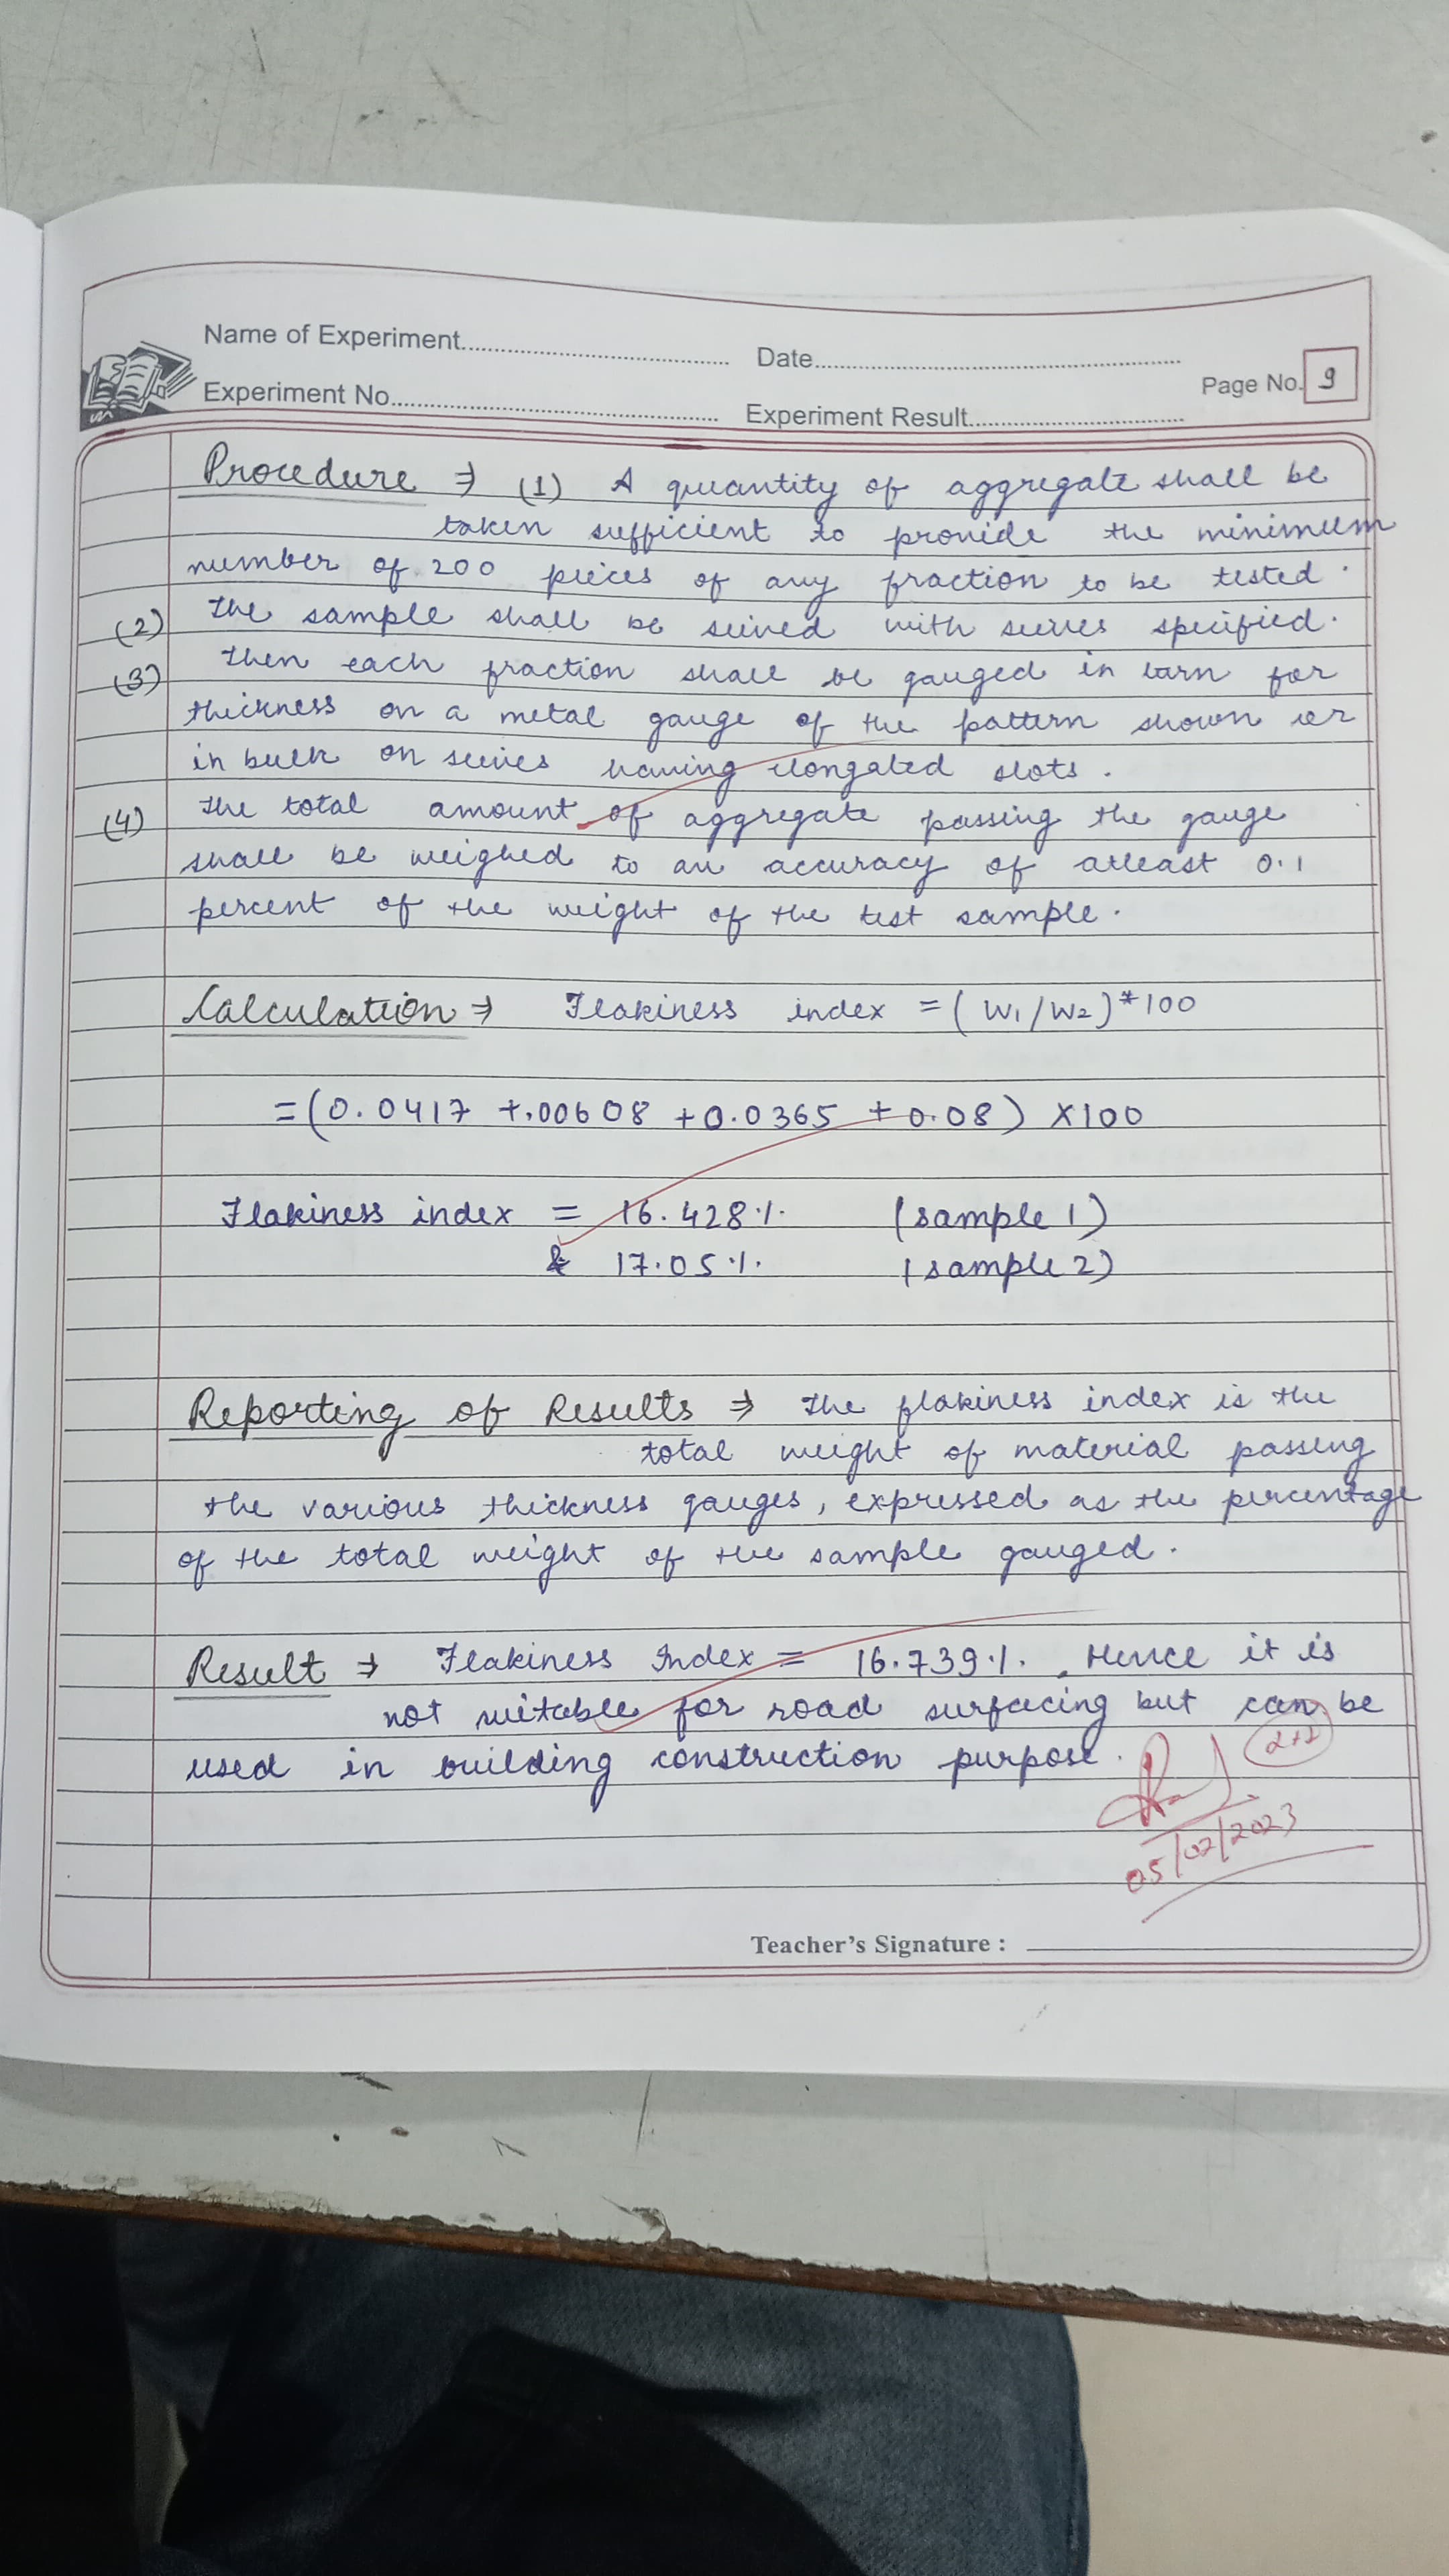 Name of Experiment............ Date............
Experiment No............ Experiment Result............ Page No. 9
Procedure ⇒ (1) A quantity of aggregate shall be
taken sufficient to provide the minimum
number of 200 pieces of any fraction to be tested.
(2) The sample shall be seived with seives specified.
(3) Then each fraction shall be gauged in tarn for
thickness on a metal gauge of the pattern shown or
in bulk on seives having elongated slots.
(4) The total amount of aggregate passing the gauge
shall be weighed to an accuracy of atleast 0.1
percent of the weight of the test sample.
Calculation ⇒ Flakiness index = (W1/W2)*100
= (0.0417 + .00608 + 0.0365 + 0.08) X100
Flakiness index = 16.428% (sample 1)
& 17.05% (sample 2)
Reporting of Results ⇒ The flakiness index is the
total weight of material passing
the various thickness gauges, expressed as the percentage
of the total weight of the sample gauged.
Result ⇒ Flakiness Index = 16.739%. Hence it is
not suitable for road surfacing but can be
used in building construction purpose.
05/02/2023
Teacher's Signature :